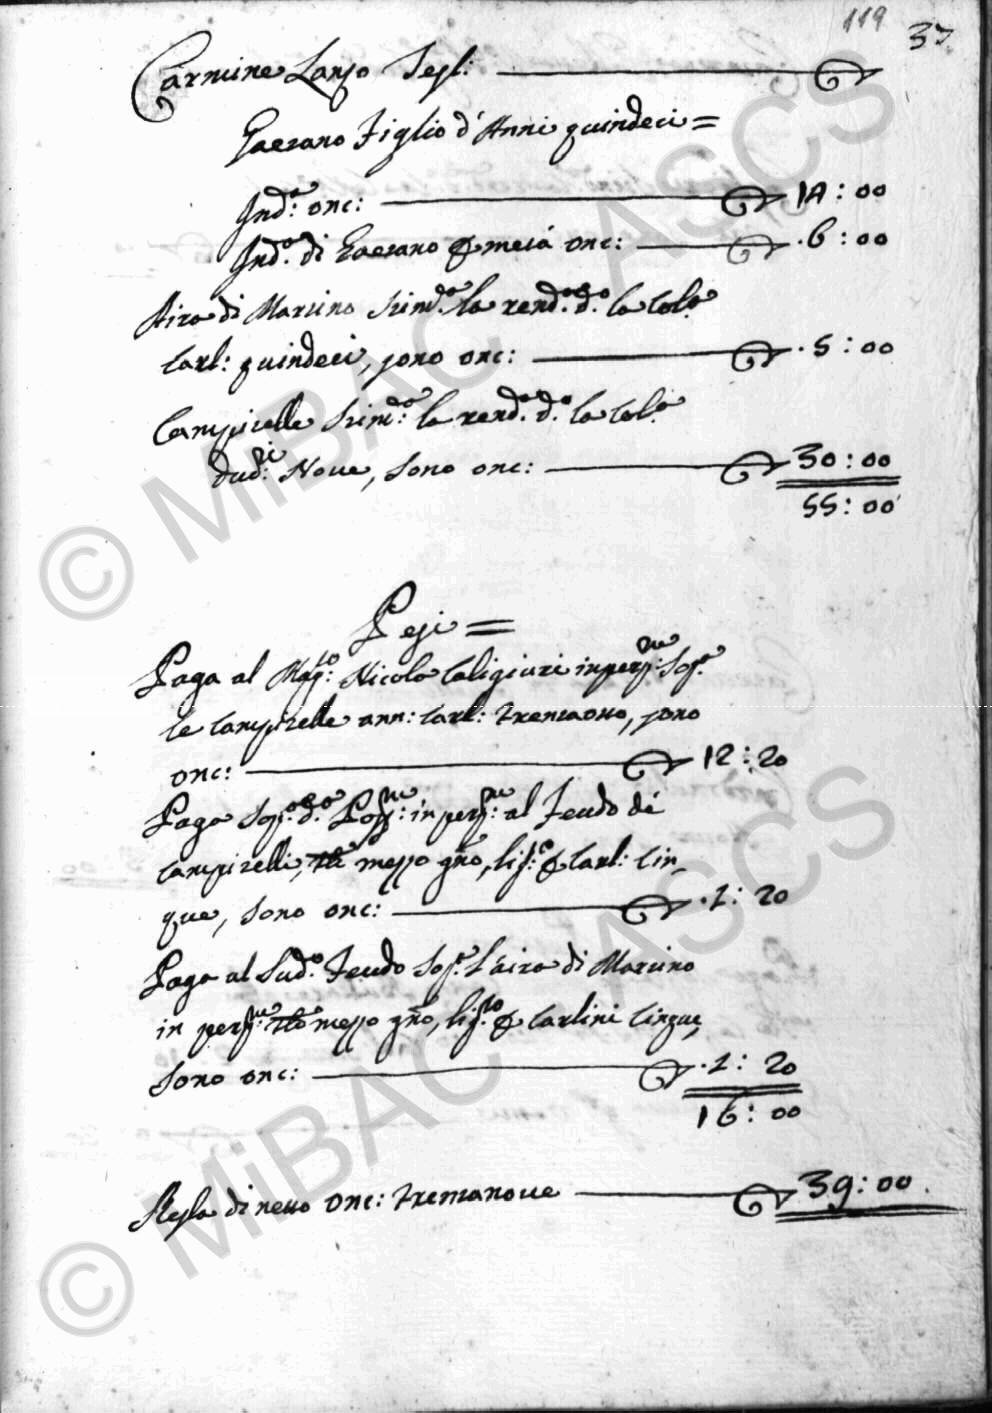 119
37
Carmine Lanzo Tegl:
Gaetano Figlio d'Anni quindeci =
Ind.a: onc: 14 : 00
Ind.a di Gaetano p metà onc: .6 : 00
Aira di Martino stim.a la rend.a d.o la Col.a
Carl: quindeci, sono onc: .5 : 00
Campitelle stim.a la rend.a d.o la Col.a
dud.ci Nove, sono onc: 30 : 00
55 : 00
Pesi =
Paga al Mag.co Nicola Caligiuri in perp.m: Sop.a
le Campitelle ann: Carl: trentaotto, sono
onc: 12 : 20
Paga Sop.a d.o in perp.m: al Feudo de
Campitelli, mezzo gno, p Carl: Cin-
que, sono onc: .1 : 20
Paga al Sud.o Feudo Sop.a l'aira di Martino
in perp.m mezzo gno, p Carlini Cinque
sono onc: .1 : 20
16 : 00
Resta di netto onc: trentanove 39 : 00.
© MiBAC ASCS
© MiBAC ASCS